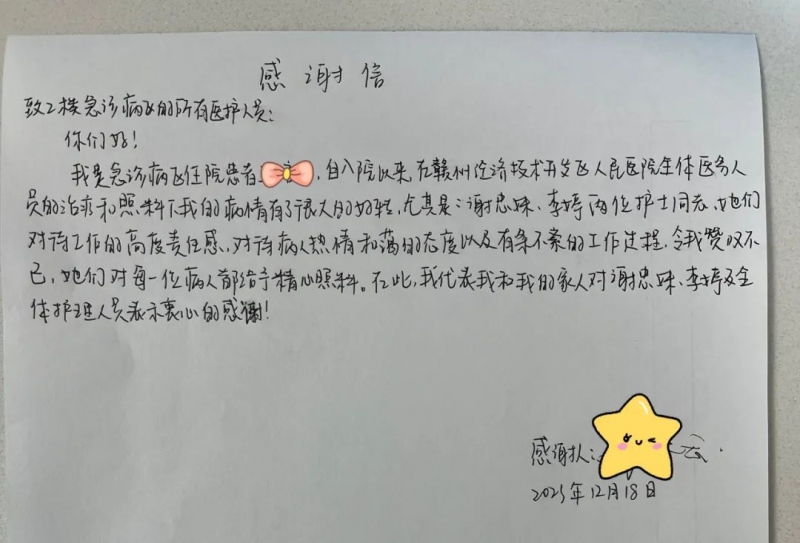 感谢信
致2楼急诊病区的所有医护人员:
你们好!
我是急诊病区住院患者,自入院以来,在赣州经济技术开发区人民医院全体医务人
员的治疗和照料下我的病情有了很大的好转,尤其是:谢忠妹、李婷两位护士同志,她们
对待工作的高度责任感,对待病人热情和蔼的态度以及有条不紊的工作过程,令我赞叹不
已,她们对每一位病人都给予精心照料。在此,我代表我和我的家人对谢忠妹、李婷及全
体护理人员表示衷心的感谢!
感谢人:
2025年12月18日